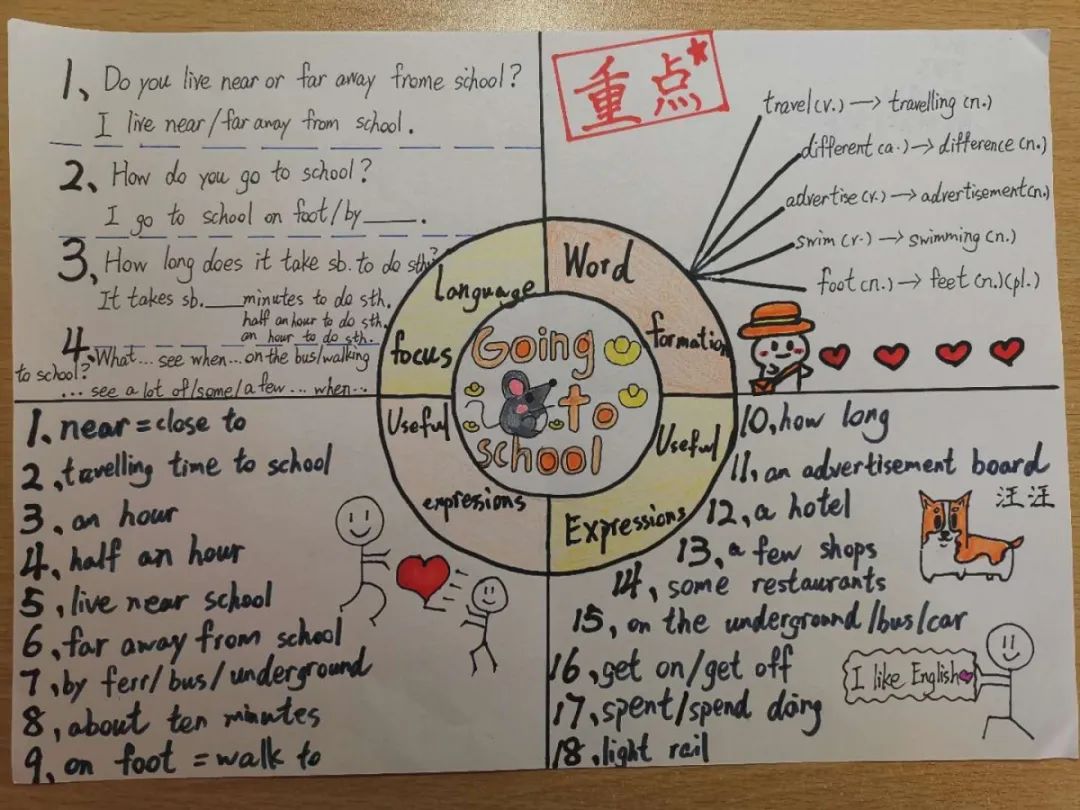 1、Do you live near or far away frome school?
I live near/far away from school.
2、How do you go to school?
I go to school on foot/by____.
3、How long does it take sb. to do sth?
It takes sb.____minutes to do sth.
half an hour to do sth.
an hour to do sth.
4、What...see when...on the bus/walking
to school?
...see a lot of/some/a few...when...
重点
travel(v.)→travelling(n.)
different(a.)→difference(n.)
advertise(v.)→advertisement(n.)
swim(v.)→swimming(n.)
foot(n.)→feet(n.)(pl.)
Language
focus
Word
formation
Going
to
school
Useful
expressions
Useful
Expressions
1、near=close to
2、travelling time to school
3、an hour
4、half an hour
5、live near school
6、far away from school
7、by ferr/bus/underground
8、about ten minutes
9、on foot=walk to
10、how long
11、an advertisement board
12、a hotel
13、a few shops
14、some restaurants
15、on the underground/bus/car
16、get on/get off
17、spent/spend doing
18、light rail
汪汪
I like English